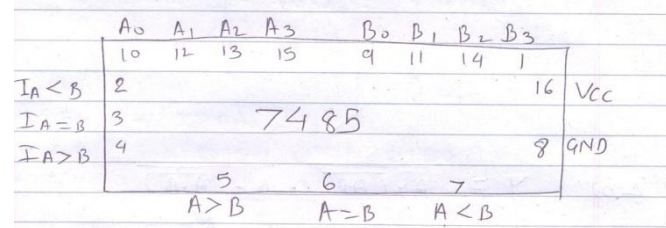 A0 A1 A2 A3 B0 B1 B2 B3
10 12 13 15 9 11 14 1
IA<B 2 16 VCC
IA=B 3 7485
IA>B 4 8 GND
5 6 7
A>B A=B A<B